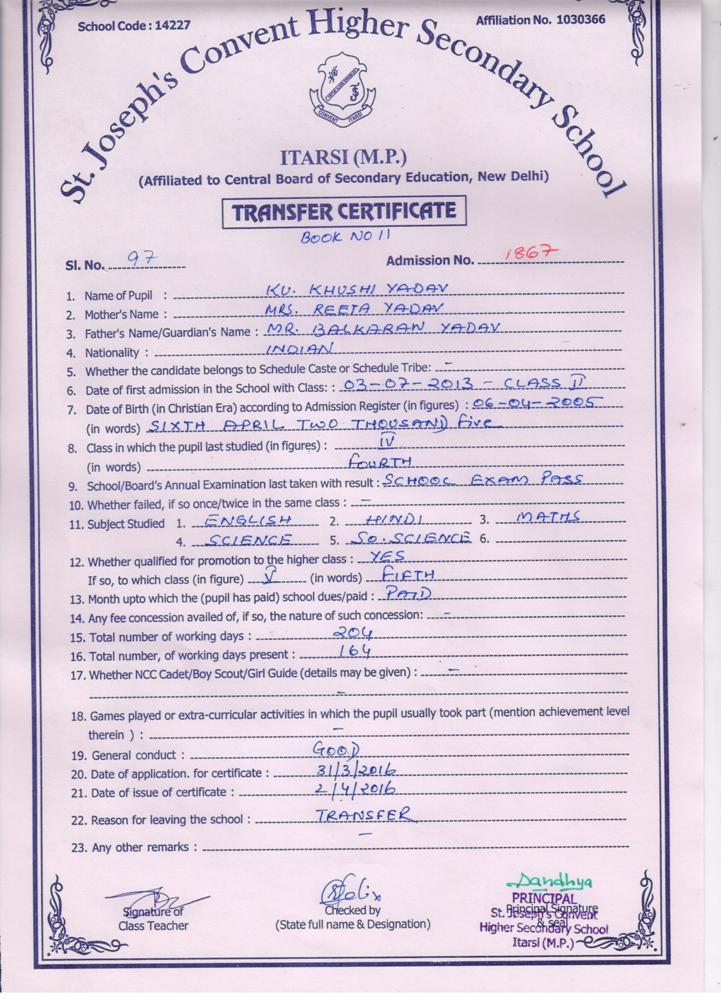 School Code : 14227
Affiliation No. 1030366
St. Joseph's Convent Higher Secondary School
CONVENT ITARSI
ITARSI (M.P.)
(Affiliated to Central Board of Secondary Education, New Delhi)
TRANSFER CERTIFICATE
BOOK NO 11
Sl. No. 97 Admission No. 1867
1. Name of Pupil : KU. KHUSHI YADAV
2. Mother's Name : MRS. REETA YADAV
3. Father's Name/Guardian's Name : MR. BALKARAN YADAV
4. Nationality : INDIAN
5. Whether the candidate belongs to Schedule Caste or Schedule Tribe: –
6. Date of first admission in the School with Class: : 03-07-2013 - CLASS II
7. Date of Birth (in Christian Era) according to Admission Register (in figures) : 06-04-2005
(in words) SIXTH APRIL TWO THOUSAND Five
8. Class in which the pupil last studied (in figures) : IV
(in words) FOURTH
9. School/Board's Annual Examination last taken with result : SCHOOL EXAM PASS
10. Whether failed, if so once/twice in the same class : –
11. Subject Studied 1. ENGLISH 2. HINDI 3. MATHS
4. SCIENCE 5. SO. SCIENCE 6.
12. Whether qualified for promotion to the higher class : YES
If so, to which class (in figure) V (in words) FIFTH
13. Month upto which the (pupil has paid) school dues/paid : PAID
14. Any fee concession availed of, if so, the nature of such concession: –
15. Total number of working days : 204
16. Total number, of working days present : 164
17. Whether NCC Cadet/Boy Scout/Girl Guide (details may be given) : –
–
18. Games played or extra-curricular activities in which the pupil usually took part (mention achievement level
therein ) : –
19. General conduct : GOOD
20. Date of application. for certificate : 31/3/2016
21. Date of issue of certificate : 2/4/2016
22. Reason for leaving the school : TRANSFER
23. Any other remarks : –
Signature of
Class Teacher
Felix
Checked by
(State full name & Designation)
Sandhya
PRINCIPAL
Principal Signature
St. Joseph's Convent
& seal
Higher Secondary School
Itarsi (M.P.)